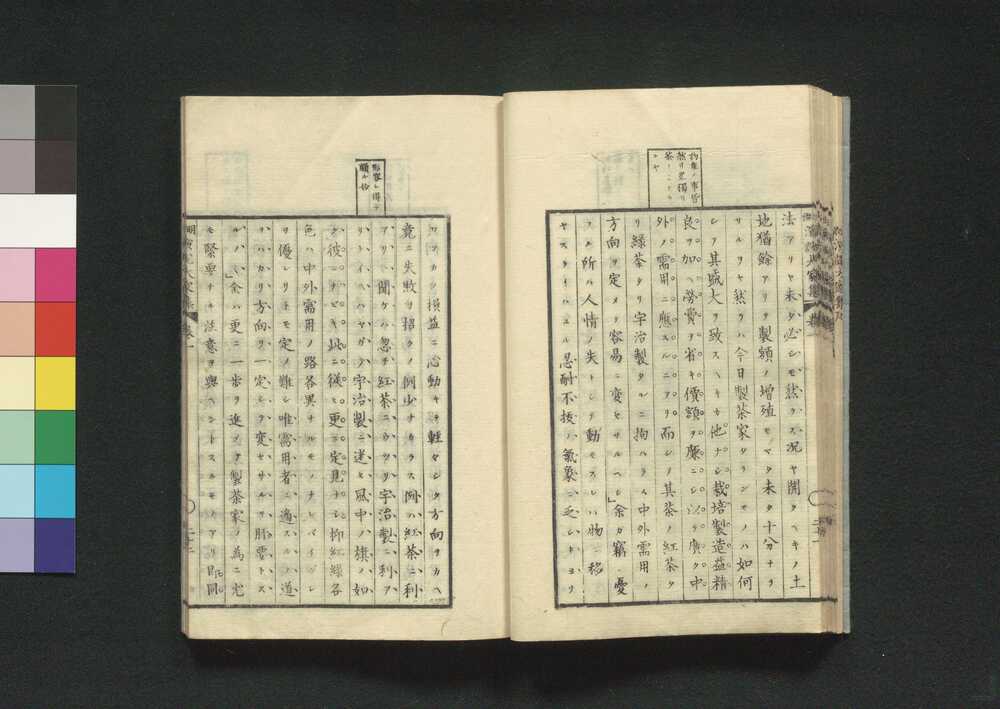 法アリヤ未タ必シモ然ラス況ヤ開クヘキノ土
地猶餘アリヲ製額ノ増殖モマタ未タ十分ナラ
サルリヤ然ラハ今日製茶家タランモノハ如何
シテ其盛大ヲ致スヘキカ他ナシ栽培製造益精
良ヲ加ヘ勞費ヲ省キ價額ヲ廉ニシテ廣ク中
外ノ需用ニ應スルニアリ而シテ其茶ノ紅茶タ
リ緑茶タリ宇治製タルニ拘ハラス中外需用ノ
方向ヲ定メテ容易ニ變セサルヘシ」余カ竊ニ憂
フル所ハ人情ノ失トシテ動モスレハ物ニ移
ヤスクイハユル忍耐不抜ノ氣象ニ乏シキヨリ
ワツカノ損益ニ心動キテ輕々シク方向ヲカヘ
竟ニ失敗ヲ招クノ例少ナカラス例ハ紅茶ニ利
アリト聞ケハ忽チ紅茶ニウツリ宇治製ニ利ア
リトイヘハヤガテ宇治製ニ迷ヒ風中ノ旗ノ如
ク彼ニナビキ此ニ從ヒ更ニ定見ナシ抑紅緑各
色ハ中外需用ノ路各異ナルモノナレバイヅレ
ヲ優レリトモ定メ難シ唯需用者ニ適スルノ道
ヲハカリ方向ヲ一定シテ變セサルヲ肝要トス
ルハ」余ハ更ニ一歩ヲ進メテ製茶家ノ為ニ尤
モ緊要ナキ注意ヲ與ヘントスルモノアリ